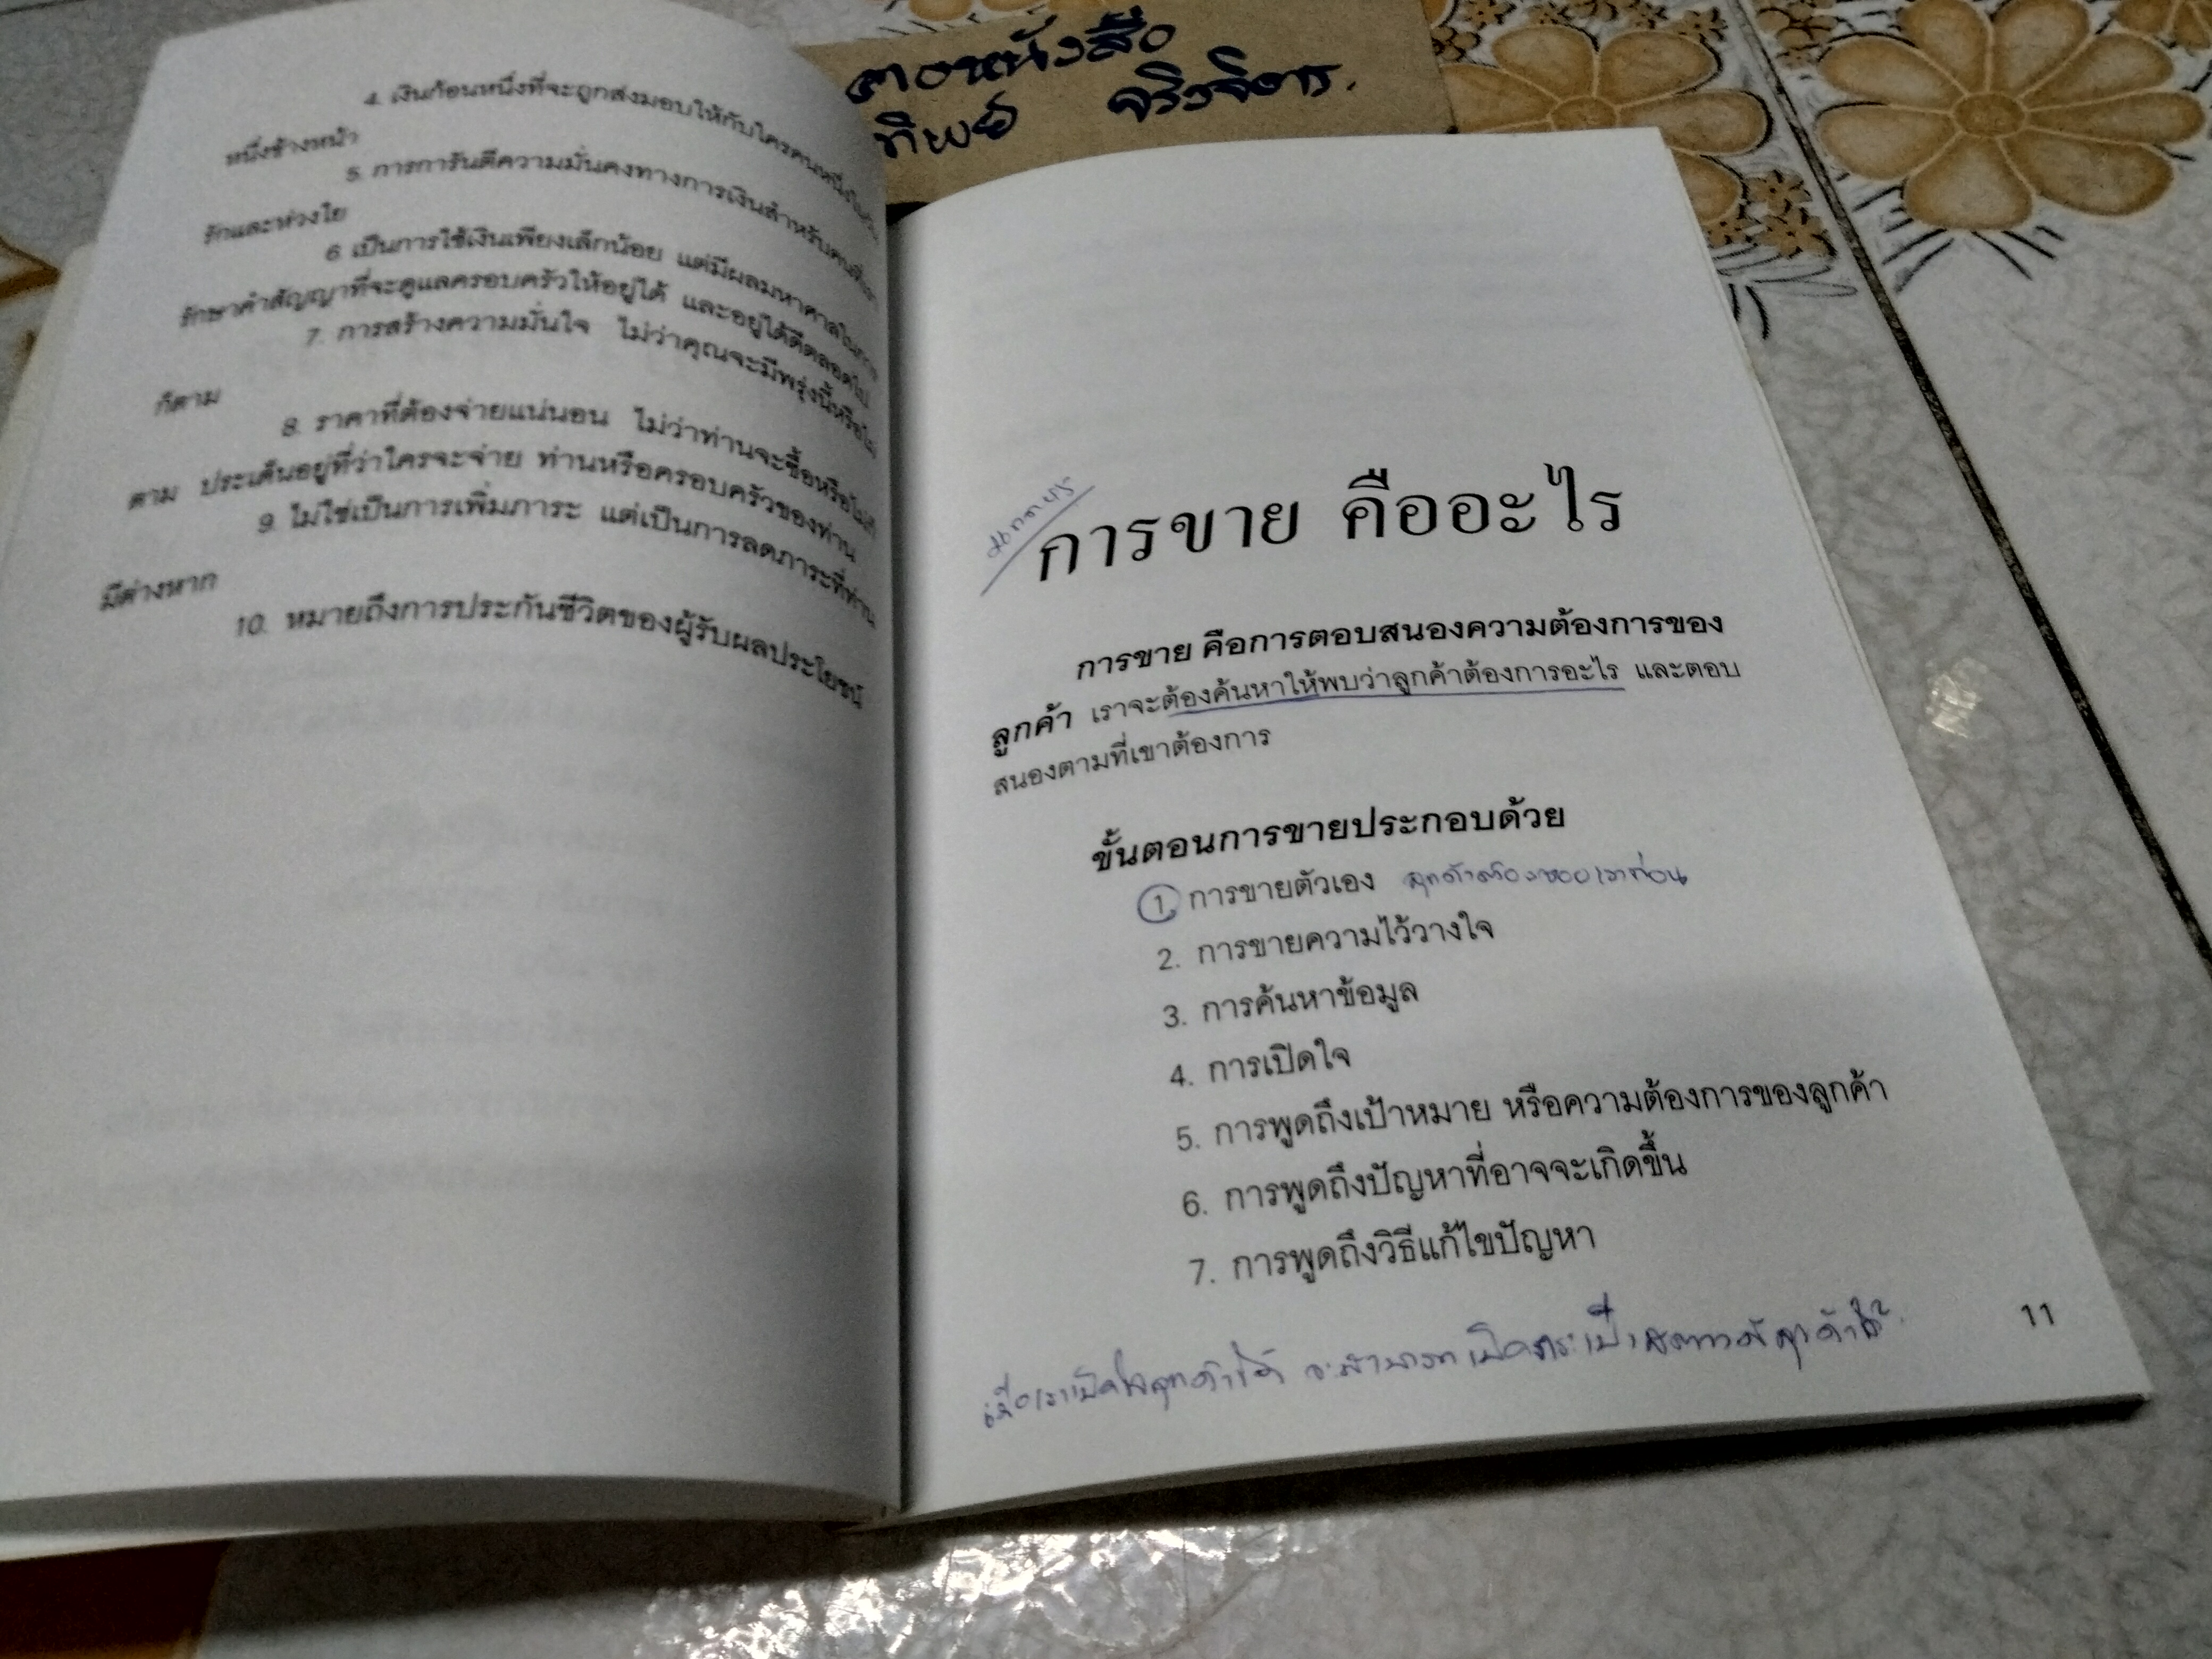 ตอหนังสือ
ทิพย์ จริงจิตร.
4. เงินก้อนหนึ่งที่จะถูกส่งมอบให้กับใครคนหนึ่งในวัน
หนึ่งข้างหน้า
5. การการันตีความมั่นคงทางการเงินสำหรับคนที่เรา
รักและห่วงใย
6. เป็นการใช้เงินเพียงเล็กน้อย แต่มีผลมหาศาลในการ
รักษาคำสัญญาที่จะดูแลครอบครัวให้อยู่ได้ และอยู่ได้ดีตลอดไป
7. การสร้างความมั่นใจ ไม่ว่าคุณจะมีพรุ่งนี้หรือไม่
ก็ตาม
8. ราคาที่ต้องจ่ายแน่นอน ไม่ว่าท่านจะซื้อหรือไม่ก็
ตาม ประเด็นอยู่ที่ว่าใครจะจ่าย ท่านหรือครอบครัวของท่าน
9. ไม่ใช่เป็นการเพิ่มภาระ แต่เป็นการลดภาระที่ท่าน
มีต่างหาก
10. หมายถึงการประกันชีวิตของผู้รับผลประโยชน์
การขาย คืออะไร
การขาย คือการตอบสนองความต้องการของ
ลูกค้า เราจะต้องค้นหาให้พบว่าลูกค้าต้องการอะไร และตอบ
สนองตามที่เขาต้องการ
ขั้นตอนการขายประกอบด้วย
1. การขายตัวเอง ลูกค้าต้องชอบเราก่อน
2. การขายความไว้วางใจ
3. การค้นหาข้อมูล
4. การเปิดใจ
5. การพูดถึงเป้าหมาย หรือความต้องการของลูกค้า
6. การพูดถึงปัญหาที่อาจจะเกิดขึ้น
7. การพูดถึงวิธีแก้ไขปัญหา
11
เมื่อเราเปิดใจลูกค้าได้ จะสามารถเปิดกระเป๋าสตางค์ลูกค้าได้.